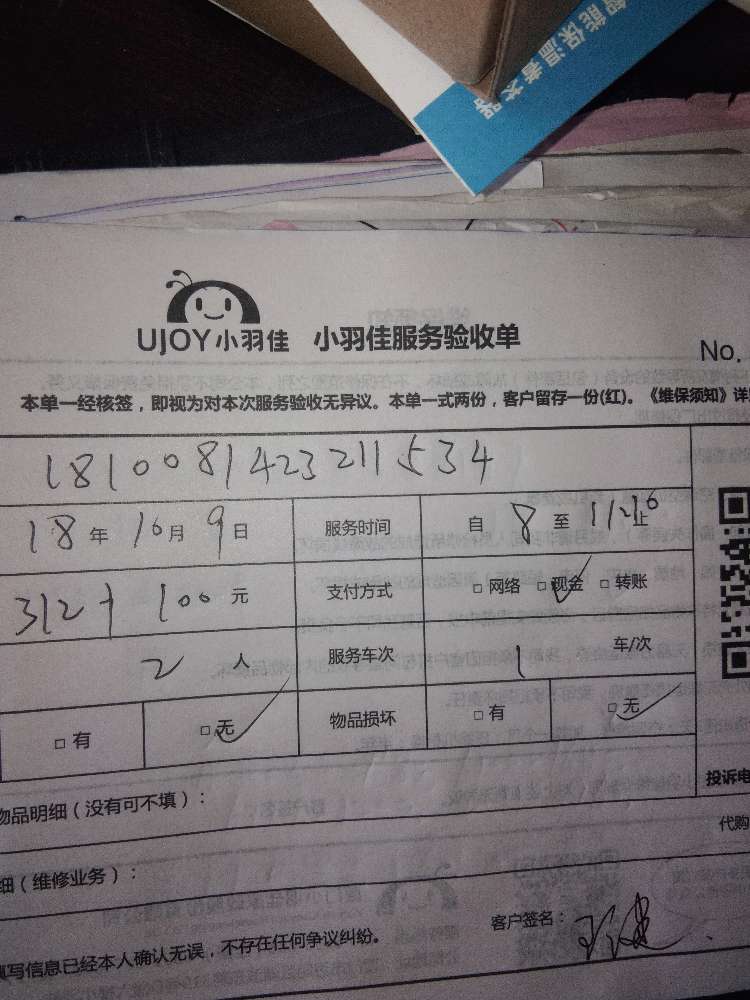 智能保温煮茶器
UJOY小羽佳 小羽佳服务验收单
No.
本单一经核签,即视为对本次服务验收无异议。本单一式两份,客户留存一份(红)。《维保须知》详
181008142321534
18年10月9日 服务时间 自 8 至 止
312+100元 支付方式 □ 网络 □ 现金 □ 转账
2 人 服务车次 1 车/次
□ 有 □ 无 物品损坏 □ 有 □ 无
物品明细(没有可不填):
投诉电
代购
细(维修业务):
客户签名:
填写信息已经本人确认无误,不存在任何争议纠纷。